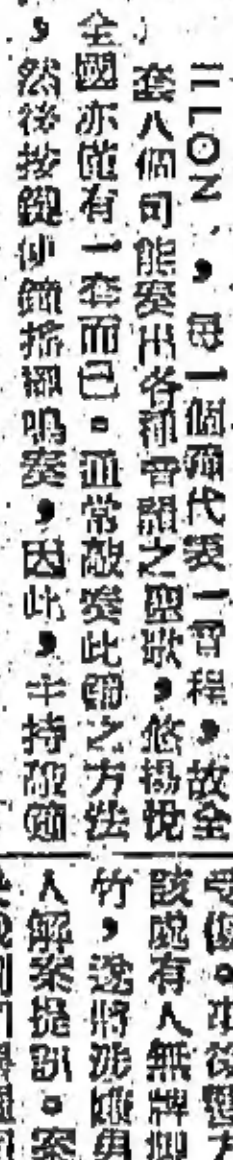 ILLON,每一個鐘代表一音程,故全
套八個可能奏出各種音韻之聖歌,悠揚悅
全國亦僅有一套而已。通常敲奏此鐘之方法
,然後按鍵使鐘搖擺鳴奏,因此,主持敲鐘
受傷。事後警方
該處有人無牌
竹,遂將涉嫌男
人解案提訊。案